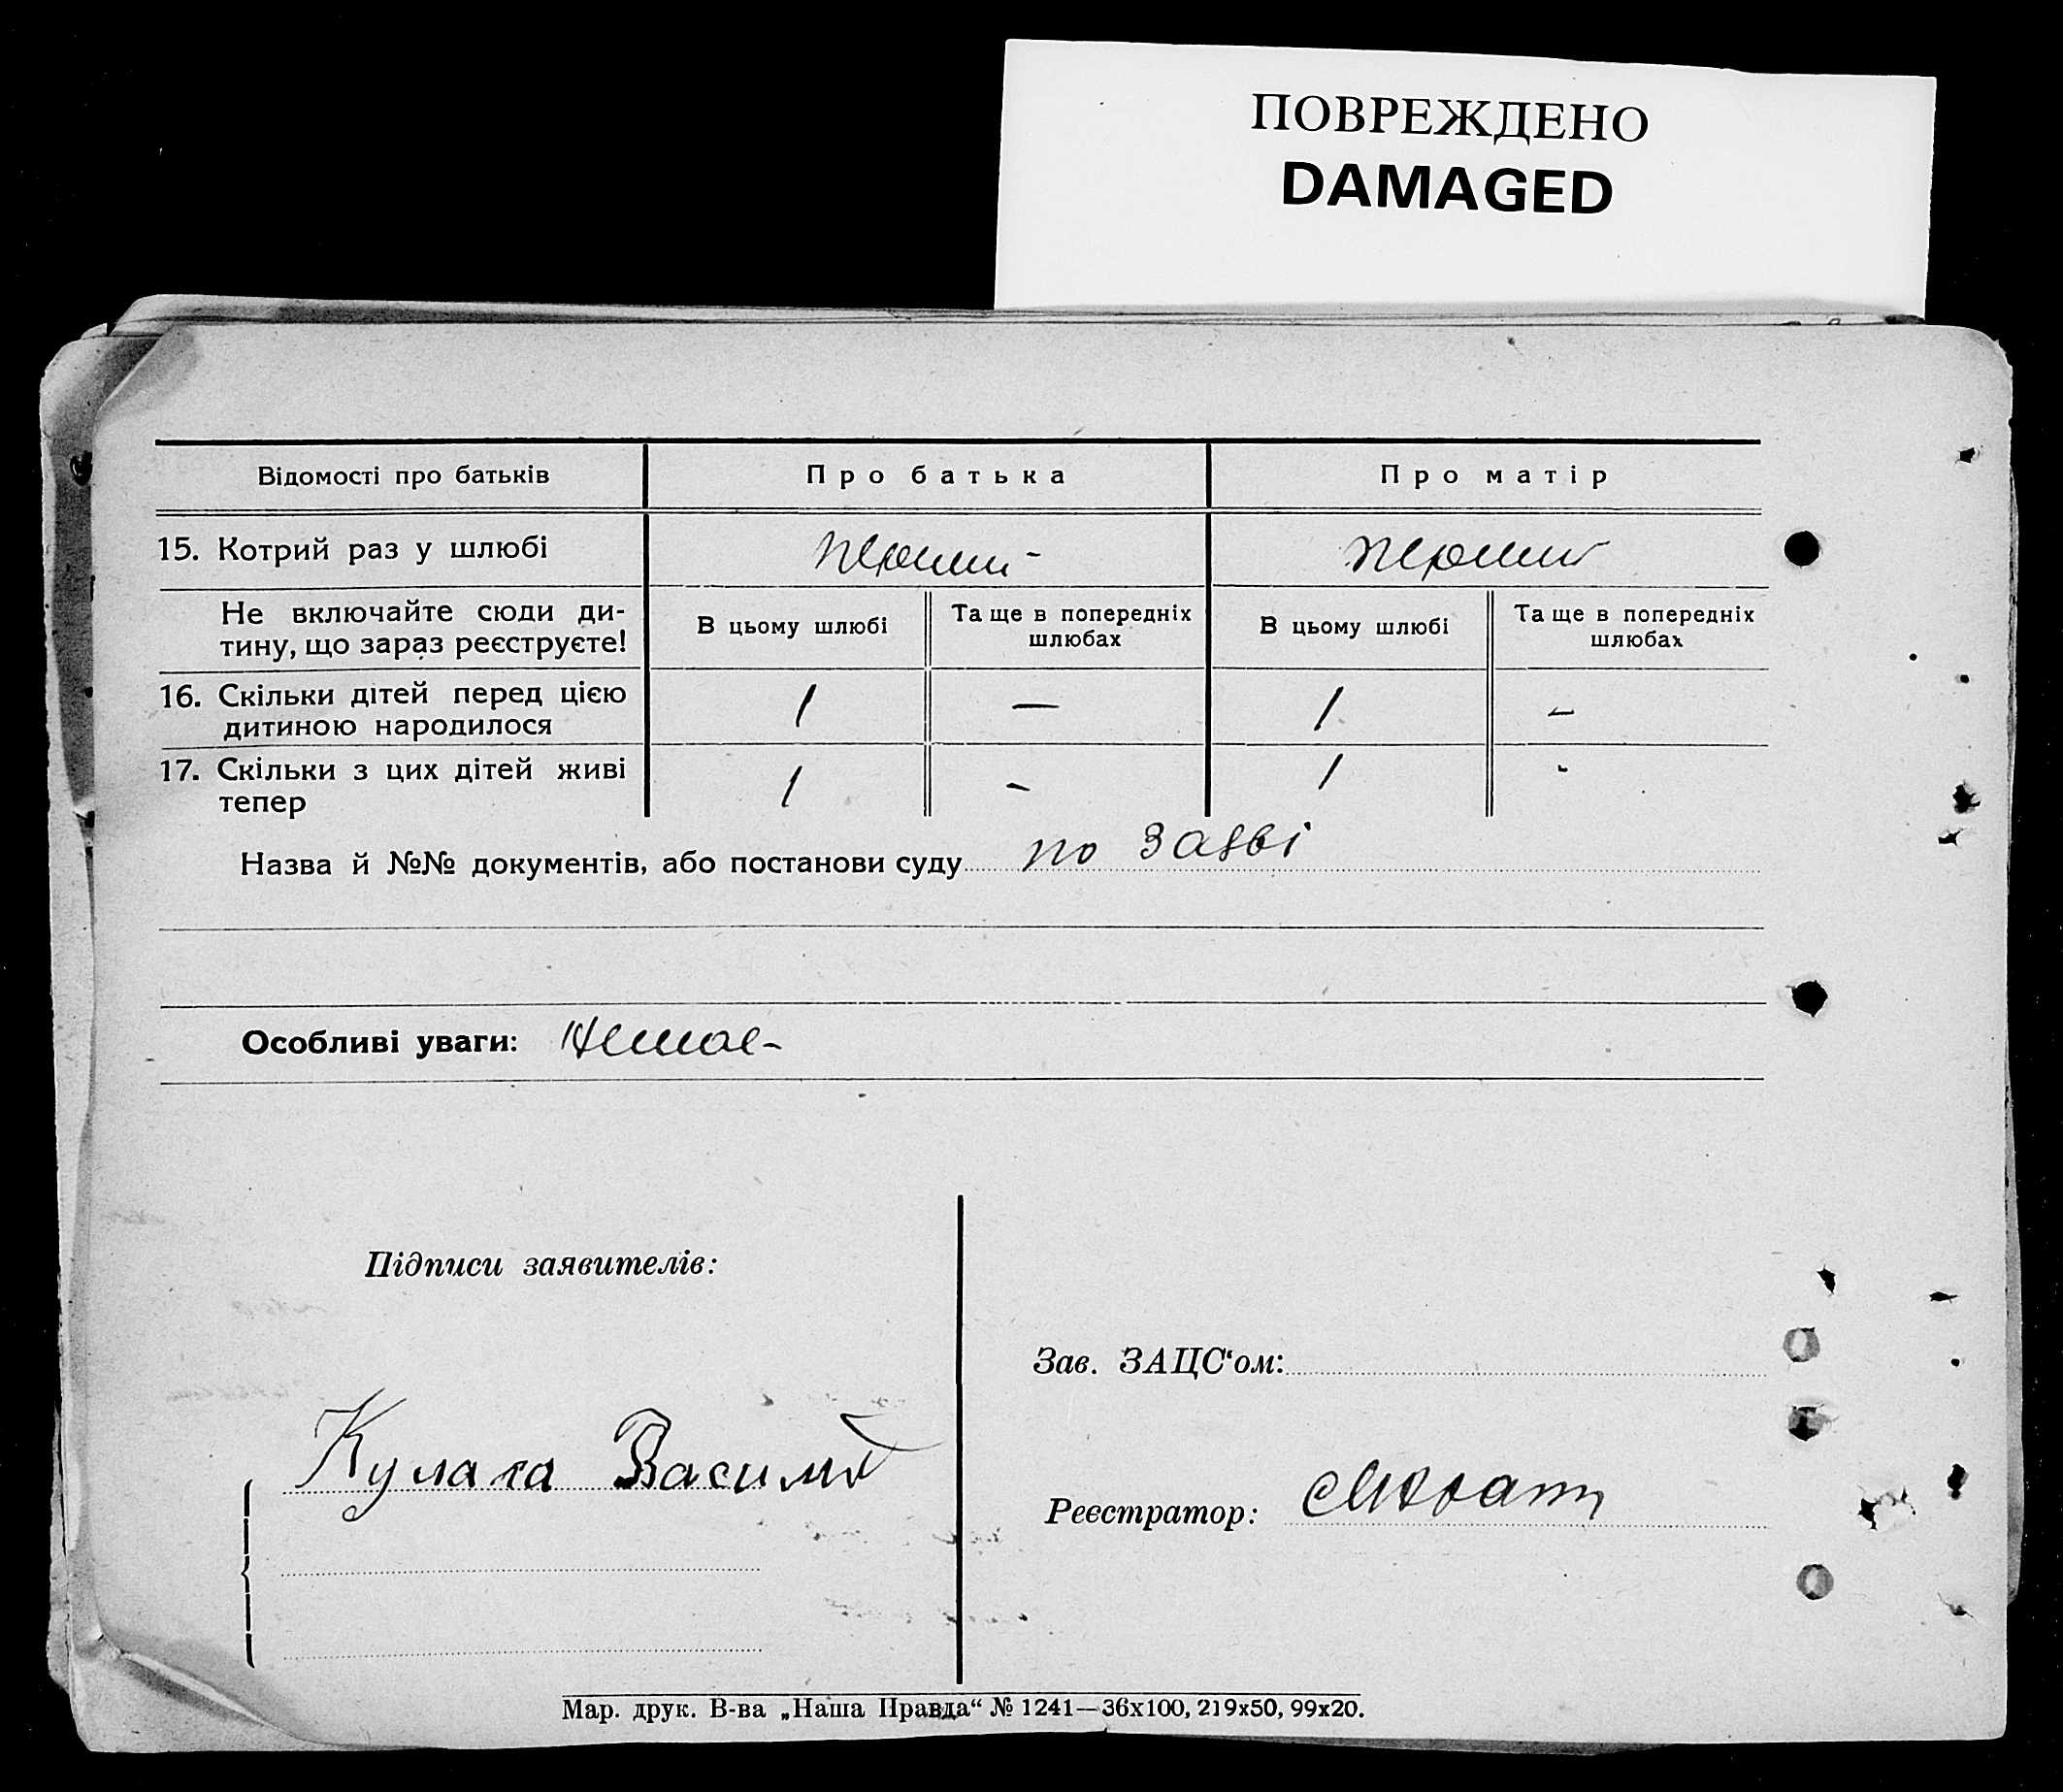 ПОВРЕЖДЕНО
DAMAGED
Відомості про батьків
Про батька
Про матір
15. Котрий раз у шлюбі
перший -
перший
Не включайте сюди ди-
тину, що зараз реєструєте!
В цьому шлюбі
Та ще в попередніх
шлюбах
В цьому шлюбі
Та ще в попередніх
шлюбах
16. Скільки дітей перед цією
дитиною народилося
1
—
1
–
17. Скільки з цих дітей живі
тепер
1
-
1
-
Назва й №№ документів, або постанови суду по заяві
Особливі уваги: Немає-
Підписи заявителів:
Зав. ЗАЦС‘ом:
Василь
Реєстратор:
Мар. друк. В-ва „Наша Правда“ № 1241—36х100, 219х50, 99х20.